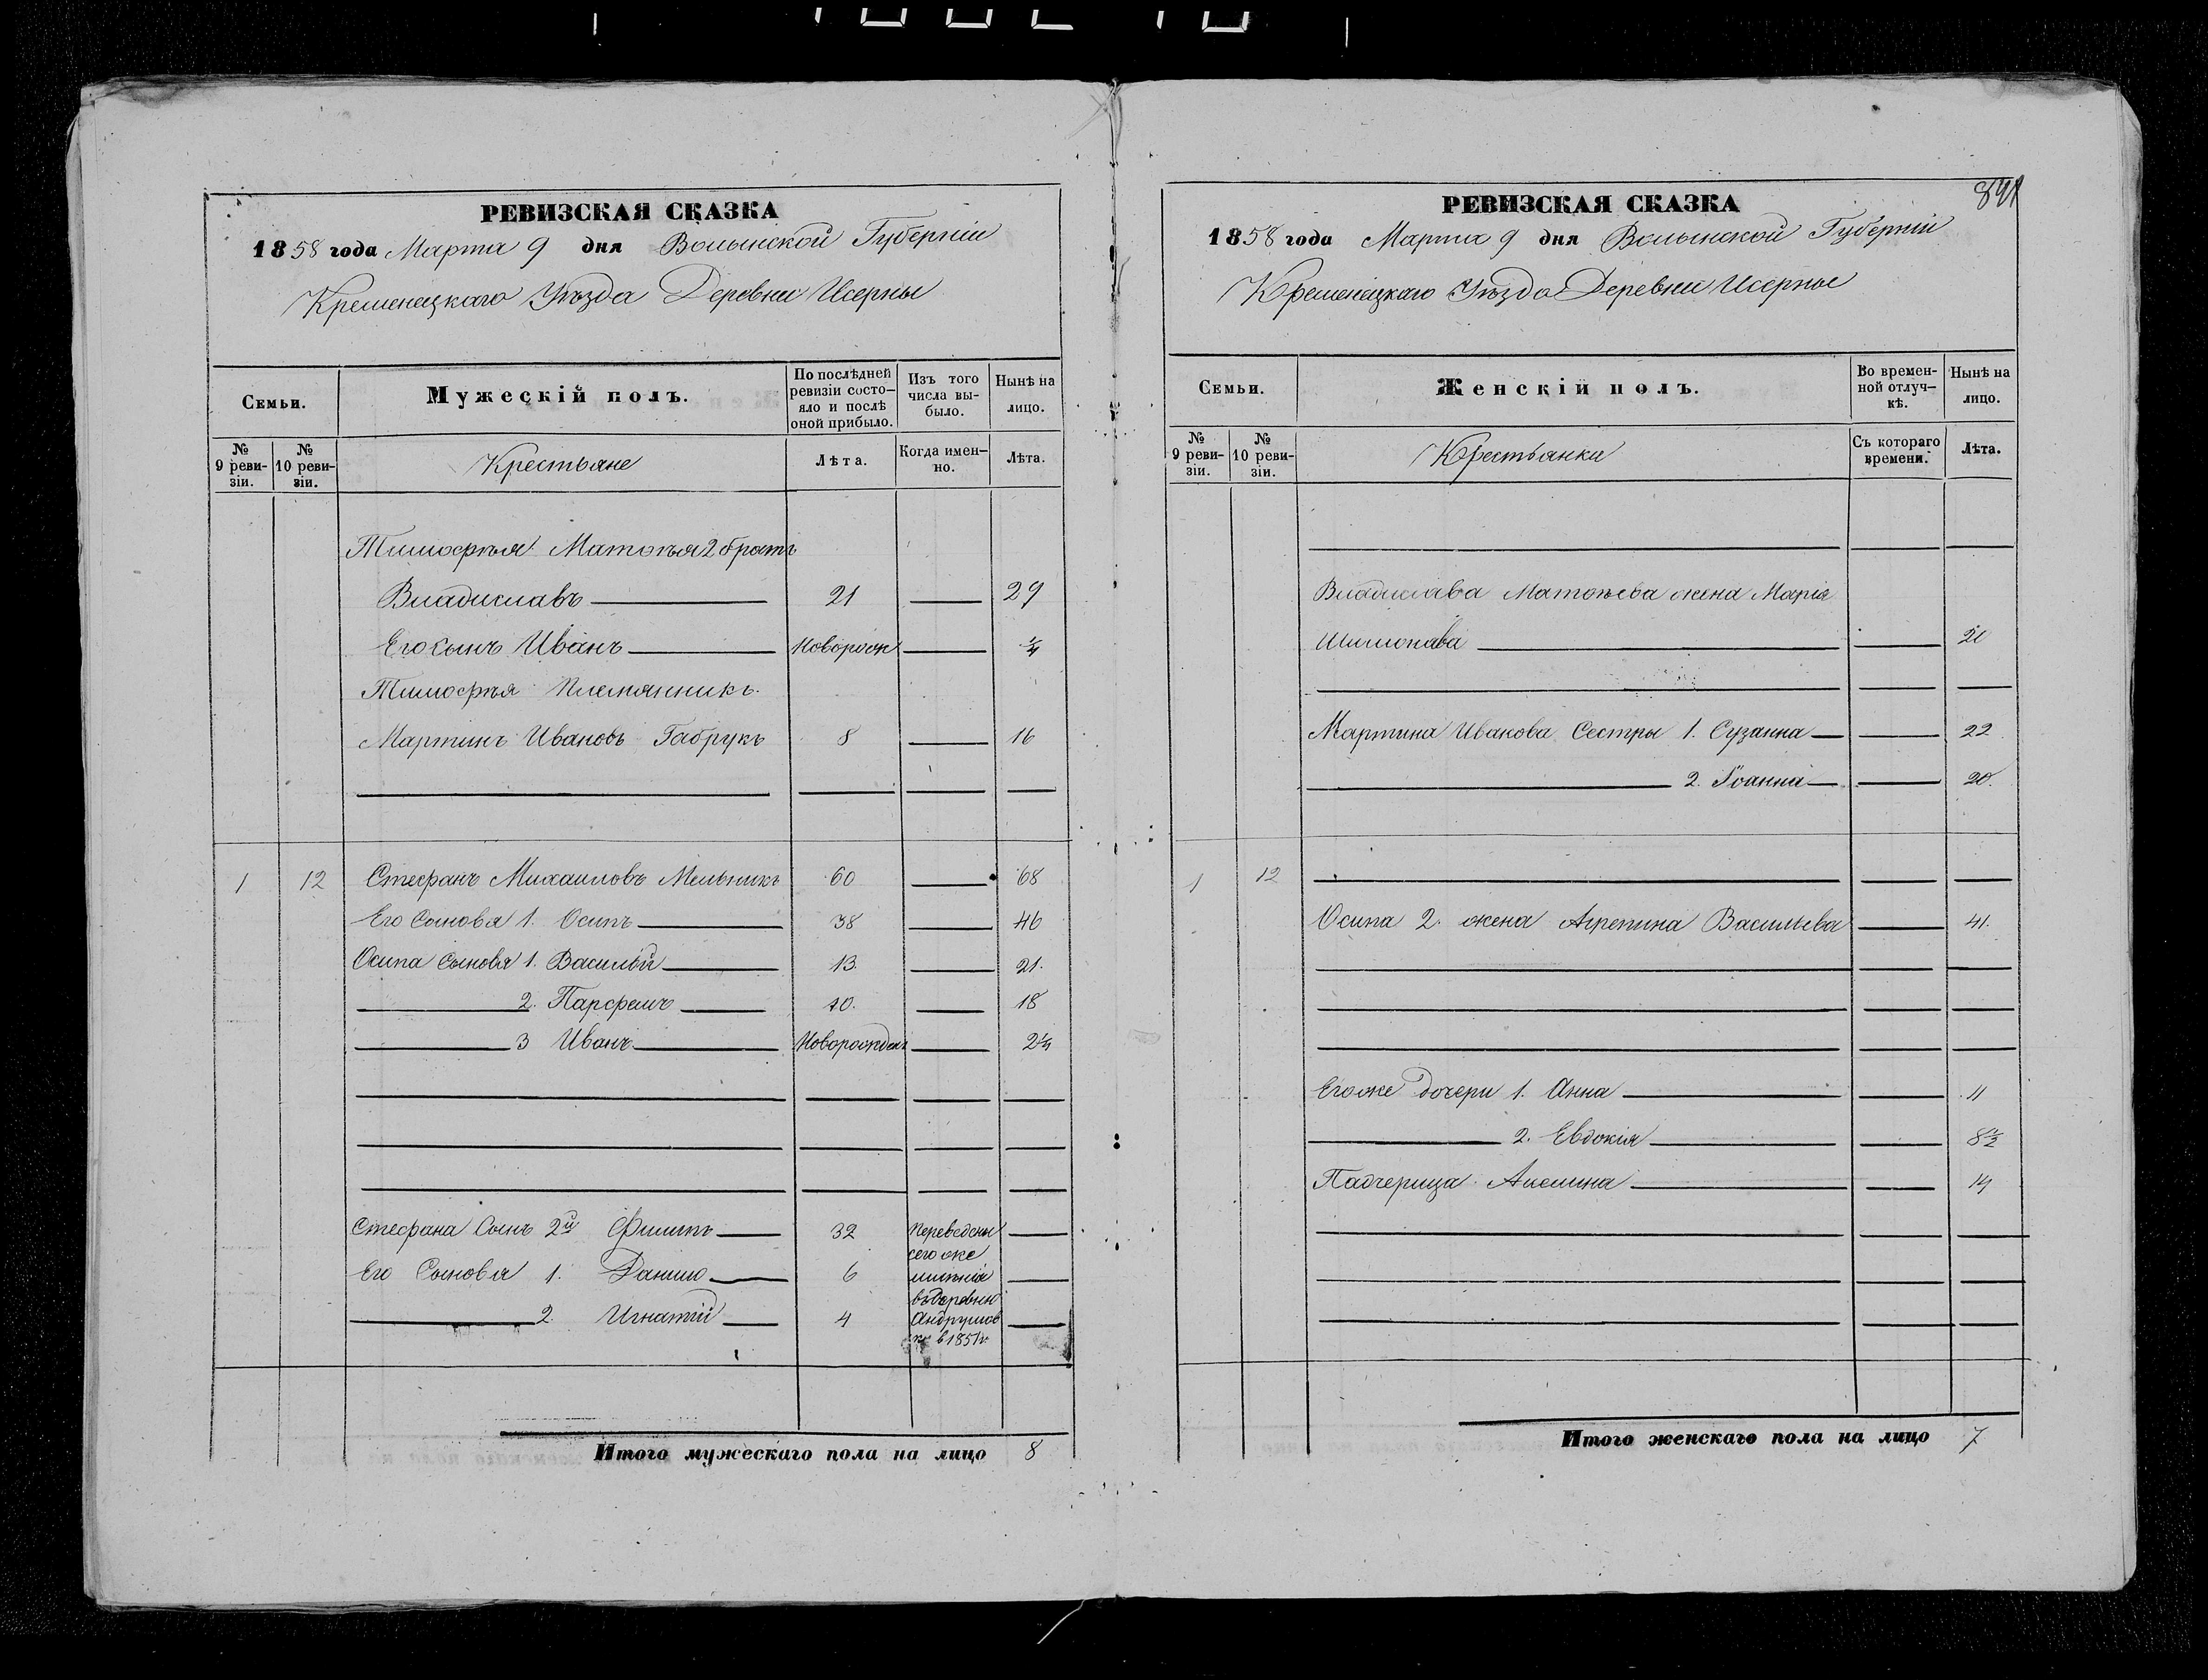 РЕВИЗСКАЯ СКАЗКА
1858 года Марта 9 дня Волынской Губерніи
Кременецкаго Уѣзда Деревни Исерны
Семьи.
Мужескій полъ.
По послѣдней ревизіи состо-
яло и послѣ оной прибыло.
Изъ того числа вы-
было.
Нынѣ на лицо.
№ 9 реви-
зіи.
№ 10 реви-
зіи.
Крестьяне
Лѣта.
Когда имен-
но.
Лѣта.
Тимофѣя Матѳѣя 2 братъ
Владиславъ 21 29
Его сынъ Иванъ Новорожд ¼
Тимофѣя племянникъ
Мартинъ Ивановъ Габрукъ 8 16
1 12 Стефанъ Михаиловъ Мельникъ 60 68
Его Сыновья 1. Осипъ 38 46
Осипа Сыновья 1. Василій 13. 21.
2. Парфемъ 10. 18
3 Иванъ Новорожденъ 2¼
Стефана Сынъ 2й Филипъ 32 Переведены
сего же
Его Сыновья 1. Данило 6 имѣнія
въ деревню
2. Игнатій 4 Андрушов
ку в 1851г.
Итого мужескаго пола на лицо 8
841
РЕВИЗСКАЯ СКАЗКА
1858 года Марта 9 дня Волынской Губерніи
Кременецкаго Уѣзда Деревни Исерны
Семьи.
Женскій полъ.
Во времен-
ной отлуч-
кѣ.
Нынѣ на лицо.
№ 9 реви-
зіи.
№ 10 реви-
зіи.
Крестьянки
Съ котораго времени.
Лѣта.
Владислава Матѳѣева жена Марія
Шимонова 20
Мартина Иванова Сестры 1. Сузанна 22
2. Іоанна 20.
1 12
Осипа 2. жена Агрепина Васильева 41.
Его же дочери 1. Анна 11
2. Евдокія 8½
Падчерица Акелина 14
Итого женскаго пола на лицо 7